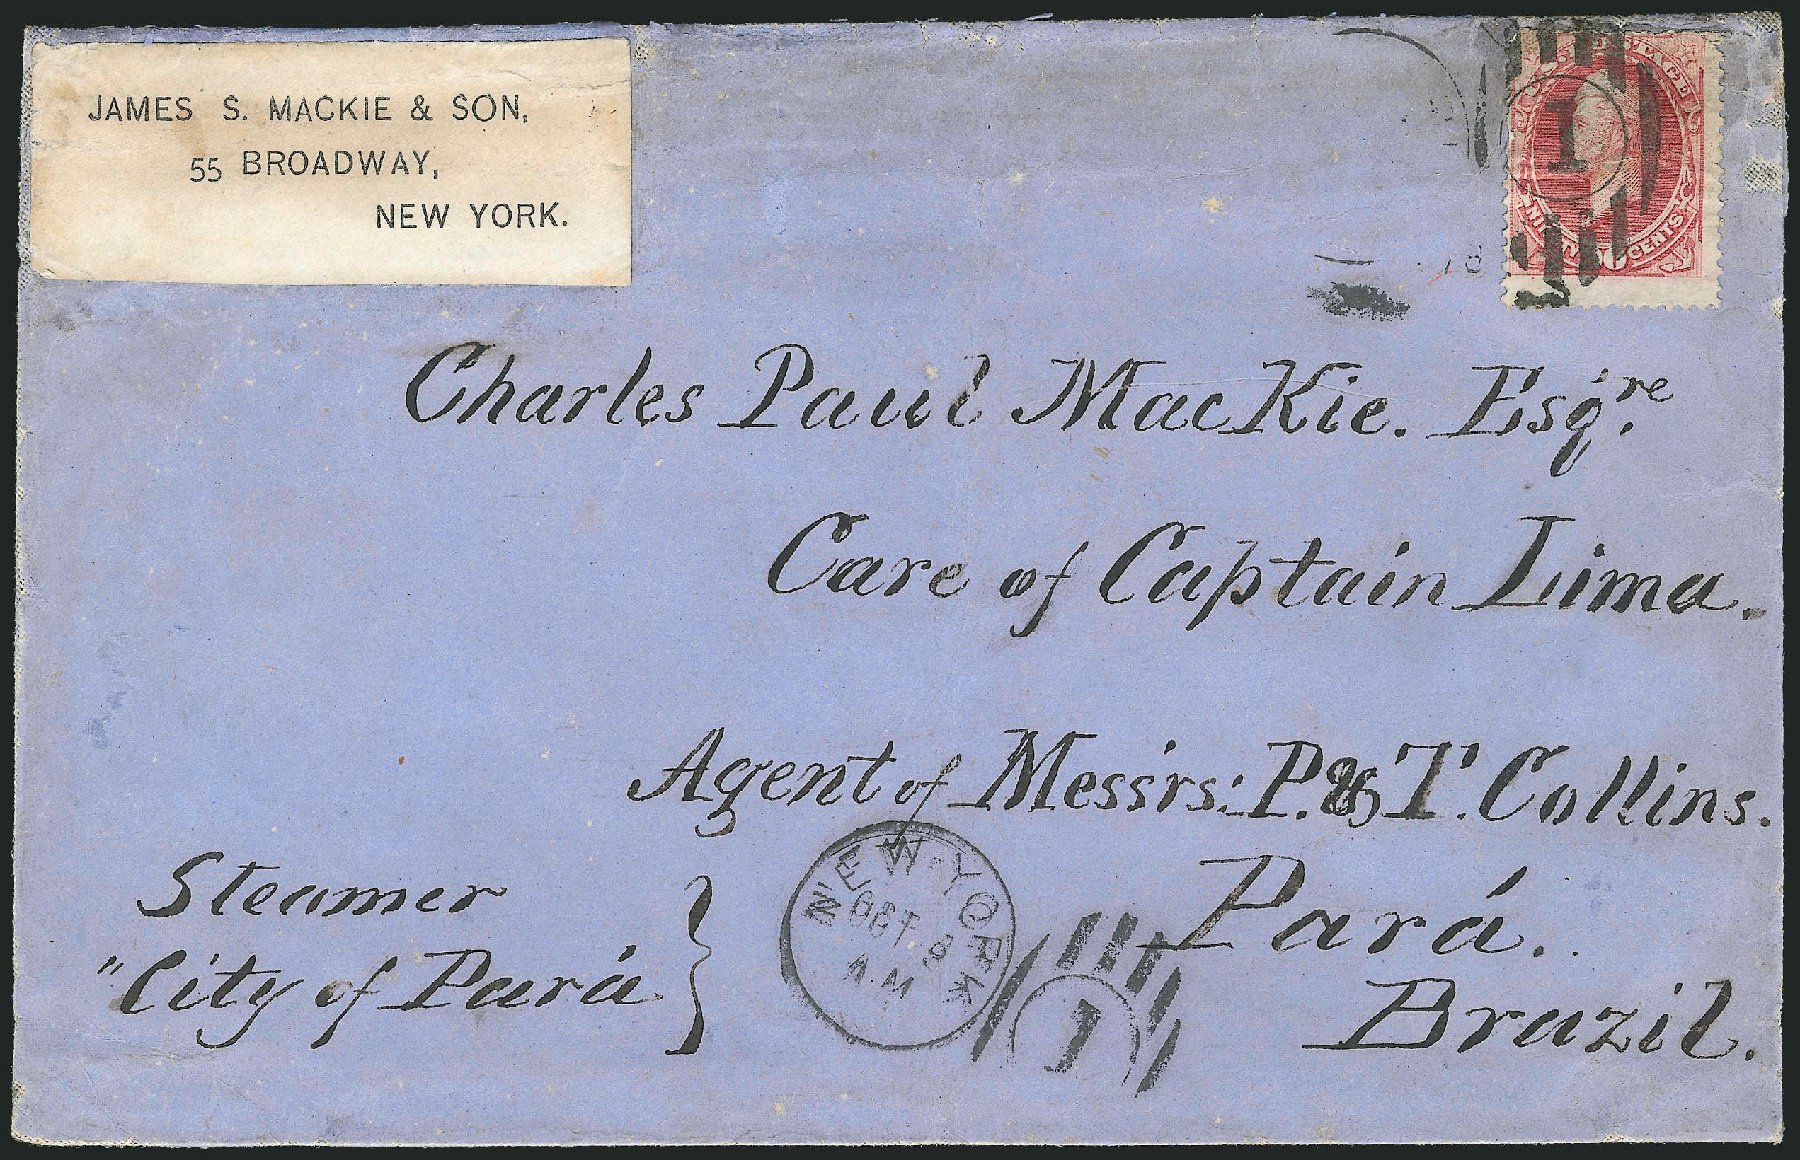 JAMES S. MACKIE & SON,
55 BROADWAY,
NEW YORK.
1
NINETY CENTS
Charles Paul MacKie. Esqre.
Care of Captain Lima.
Agent of Messrs: P. & T. Collins.
Pará.
Brazil.
Steamer
"City of Pará
NEW YORK
OCT 8
A.M
1